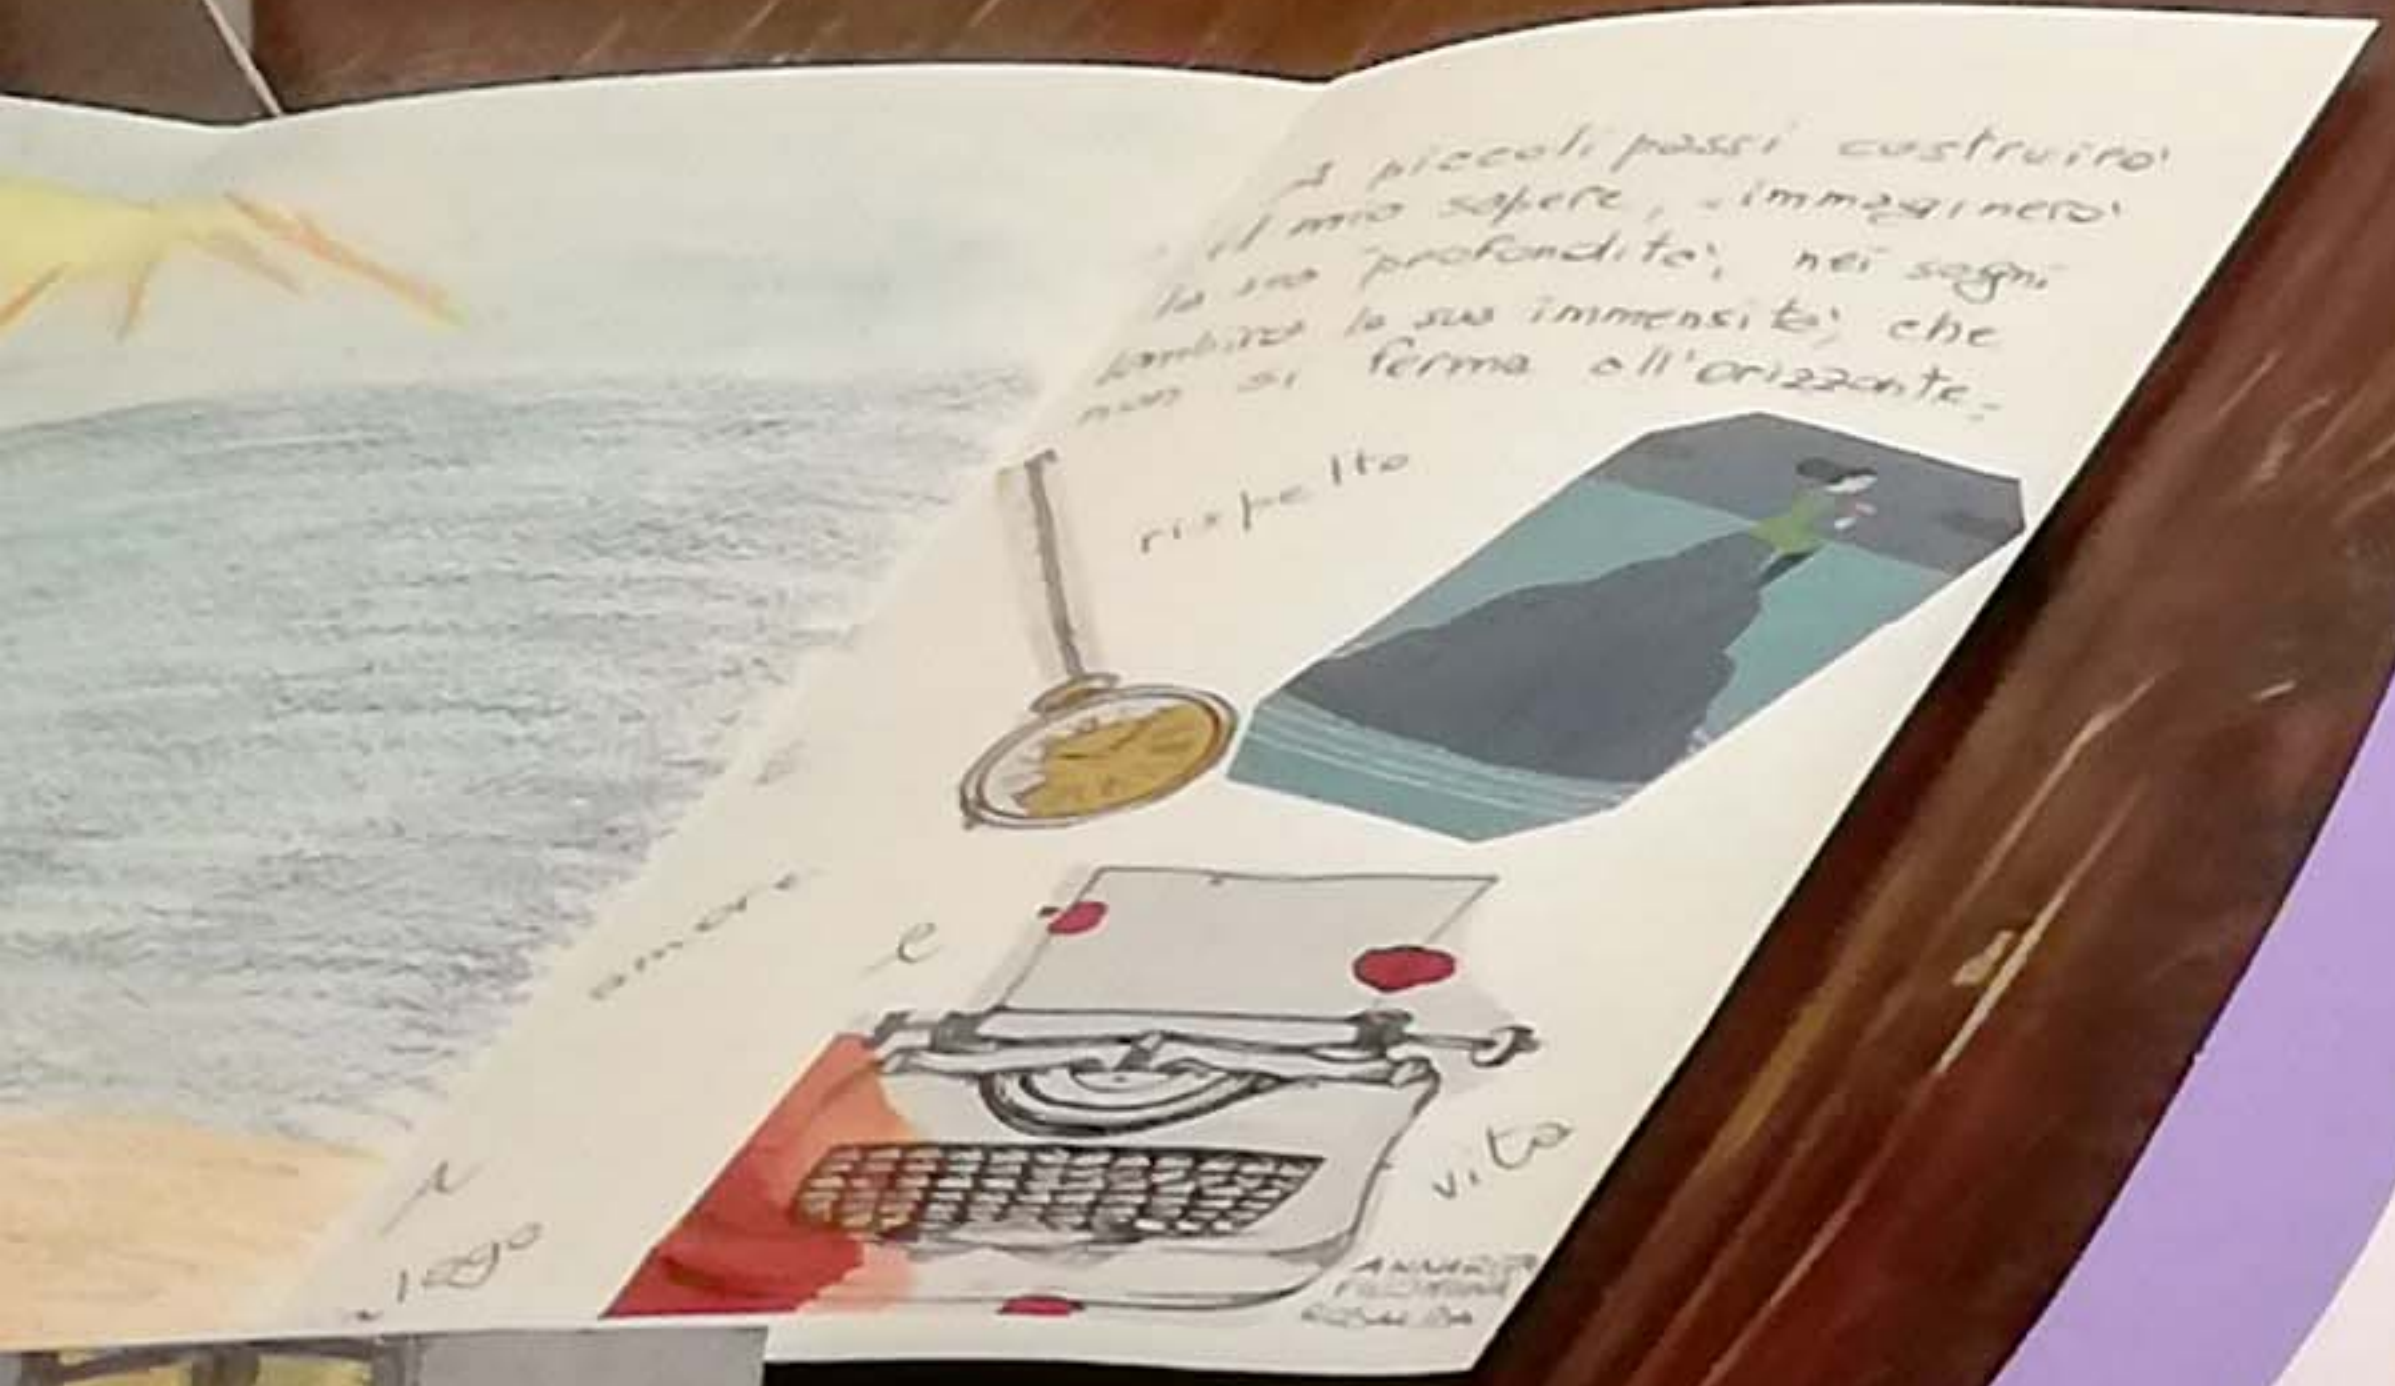 A piccoli passi costruirò
il mio sapere, immaginerò
la sua profondità, nei sogni
la sua immensità, che
non si ferma all'orizzonte.
rispetto
amore
e
vita
ANNARITA
FILOMENA